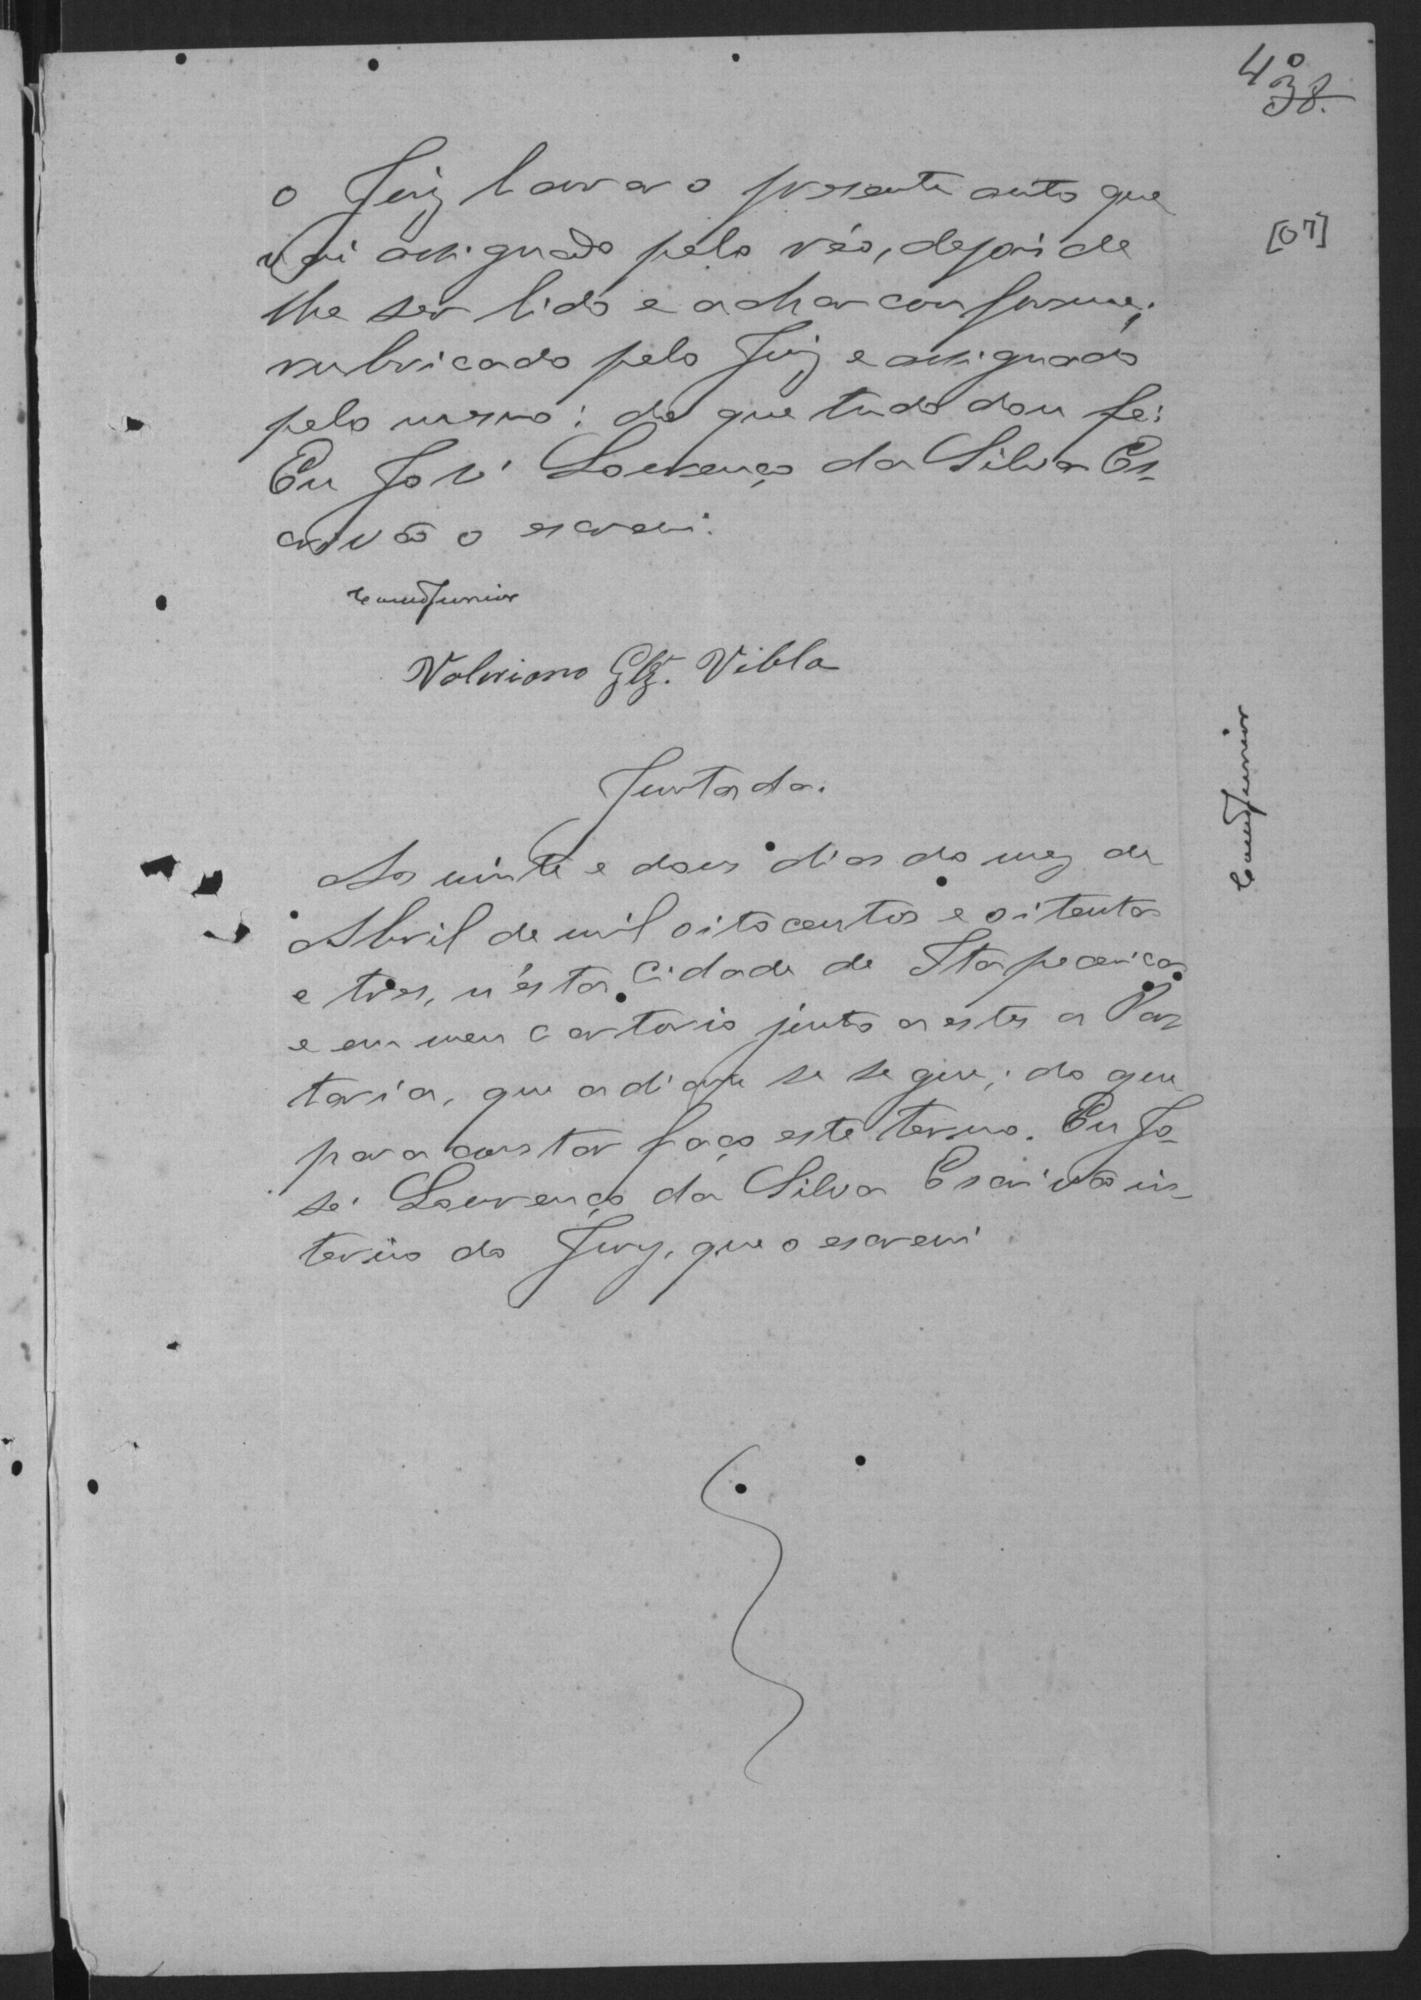 40
38.
o Juiz lavrar o presente auto que
[07]
vai assignado pelo réo, depois de
lhe ser lido e achar conforme;
rubricado pelo Juiz e assignado
pelo mesmo: do que tudo dou fé:
Eu José Lourenço da Silva Es-
crivão o escrevi.
Junior
Valeriano Glz. Vilela
Juntada.
Aos vinte e dous dias do mez de
Abril de mil oitocentos e oitenta
e tres, n'ésta Cidade de Itapecerica
e em meu cartorio junto a estes a Por
taria, que adiante se segue; do que
para constar faço este termo. Eu Jo-
sé Lourenço da Silva Escrivão in-
terino do Jury, que o escrevi
Junior